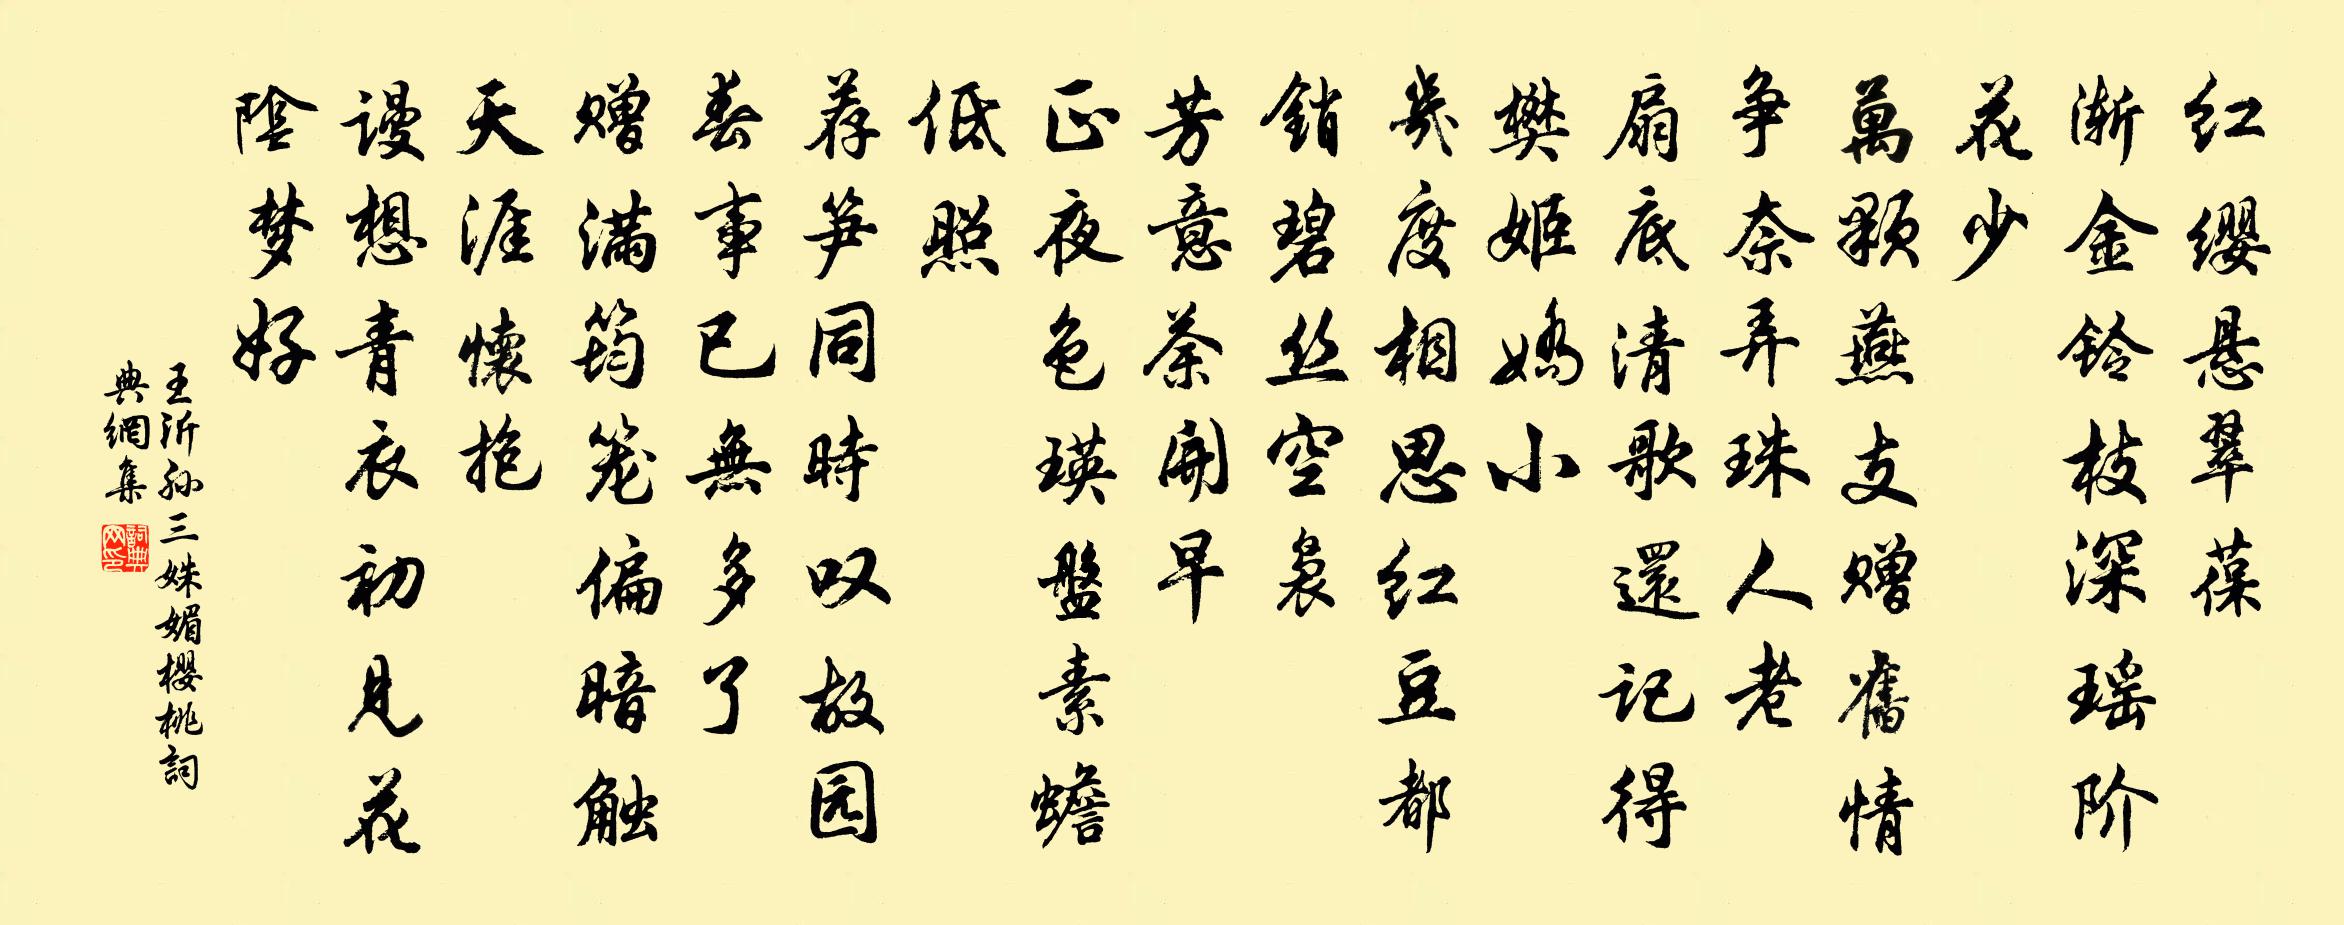 红缨悬翠葆
渐金铃枝深瑶阶
花少
萬颗燕支赠舊情
争奈弄珠人老
扇底清歌還记得
樊姬嬌小
幾度相思红豆都
銷碧丝空袅
芳意荼開早
正夜色瑛盤素蟾
低照
荐笋同時叹故园
春事已無多了
赠满筠笼偏暗触
天涯懷抱
谩想青衣初见花
陰梦好
王沂孙三姝媚櫻桃詞
典網集
詞典網印